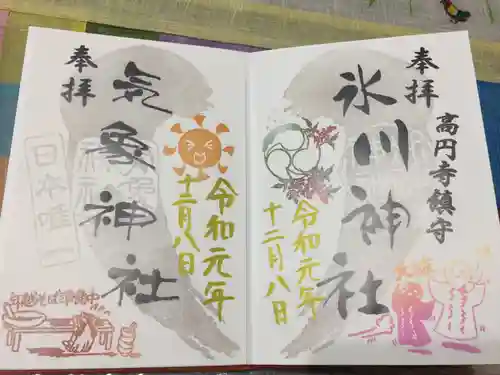 奉拝
高円寺鎮守
氷川神社
令和元年
十二月八日
奉拝
気象神社
令和元年
十二月八日
日本唯一
年越そば準備中